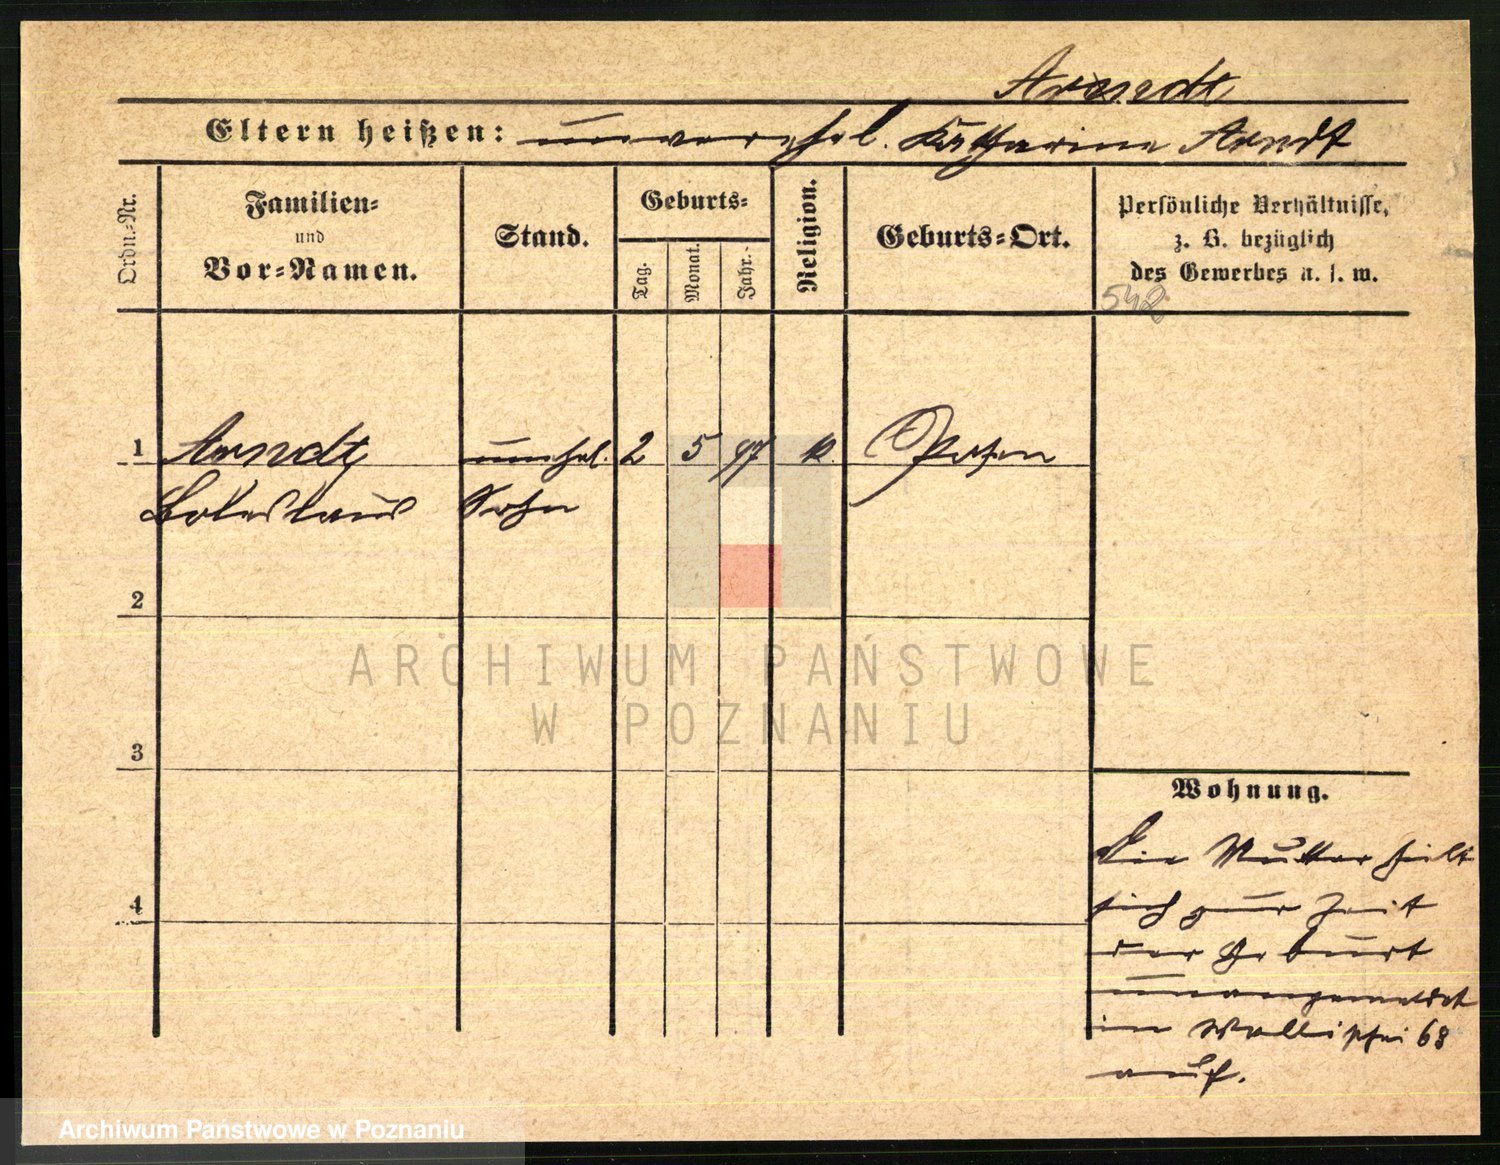 Arndt
Eltern heißen: unverehel. Katharina Arndt
Ordn.-Nr.
Familien-
und
Vor-Namen.
Stand.
Geburts-
Tag.
Monat.
Jahr.
Religion.
Geburts-Ort.
Persönliche Verhältnisse,
z. B. bezüglich
des Gewerbes u. s. w.
542
1 Arndt unehel. 2 5 97 k. Posen
Boleslaus Sohn
2
3
4
Wohnung.
Die Mutter hielt
sich zur Zeit
der Geburt
unangemeldet
in Wallischei 68
auf.
ARCHIWUM PAŃSTWOWE
W POZNANIU
Archiwum Państwowe w Poznaniu